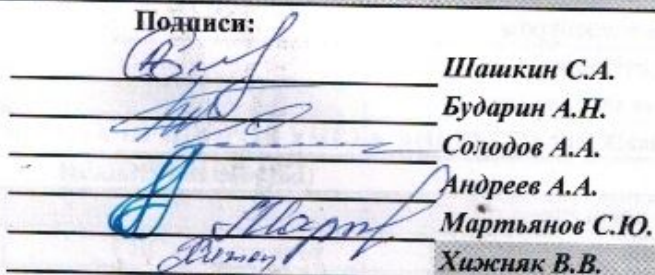 Подписи:
Шашкин С.А.
Бударин А.Н.
Солодов А.А.
Андреев А.А.
Мартьянов С.Ю.
Хижняк В.В.